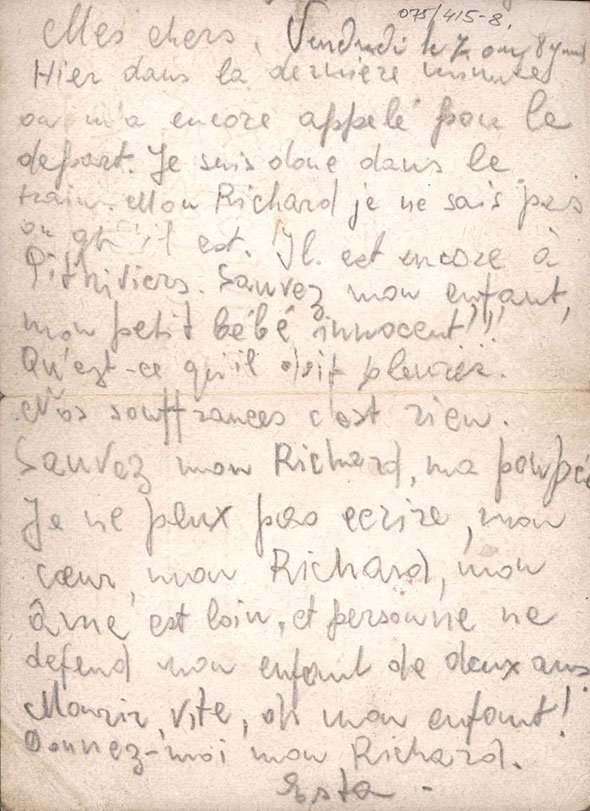 075/415-8.
Mes chers, Vendredi le 7 ou 8
Hier dans la dernière minute
on m'a encore appelé pour le
depart. Je suis donc dans le
train. Mon Richard je ne sais pas
ou qu'il est. Il est encore à
Pithiviers. Sauvez mon enfant,
mon petit bébé innocent!!!
Qu'est-ce qu'il doit pleurer.
Nos souffrances c'est rien.
Sauvez mon Richard, ma poupée
Je ne peux pas ecrire, mon
cœur, mon Richard, mon
âme est loin, et personne ne
defend mon enfant de deux ans.
Mourir, vite, oh mon enfant!
Donnez-moi mon Richard.
Esta -